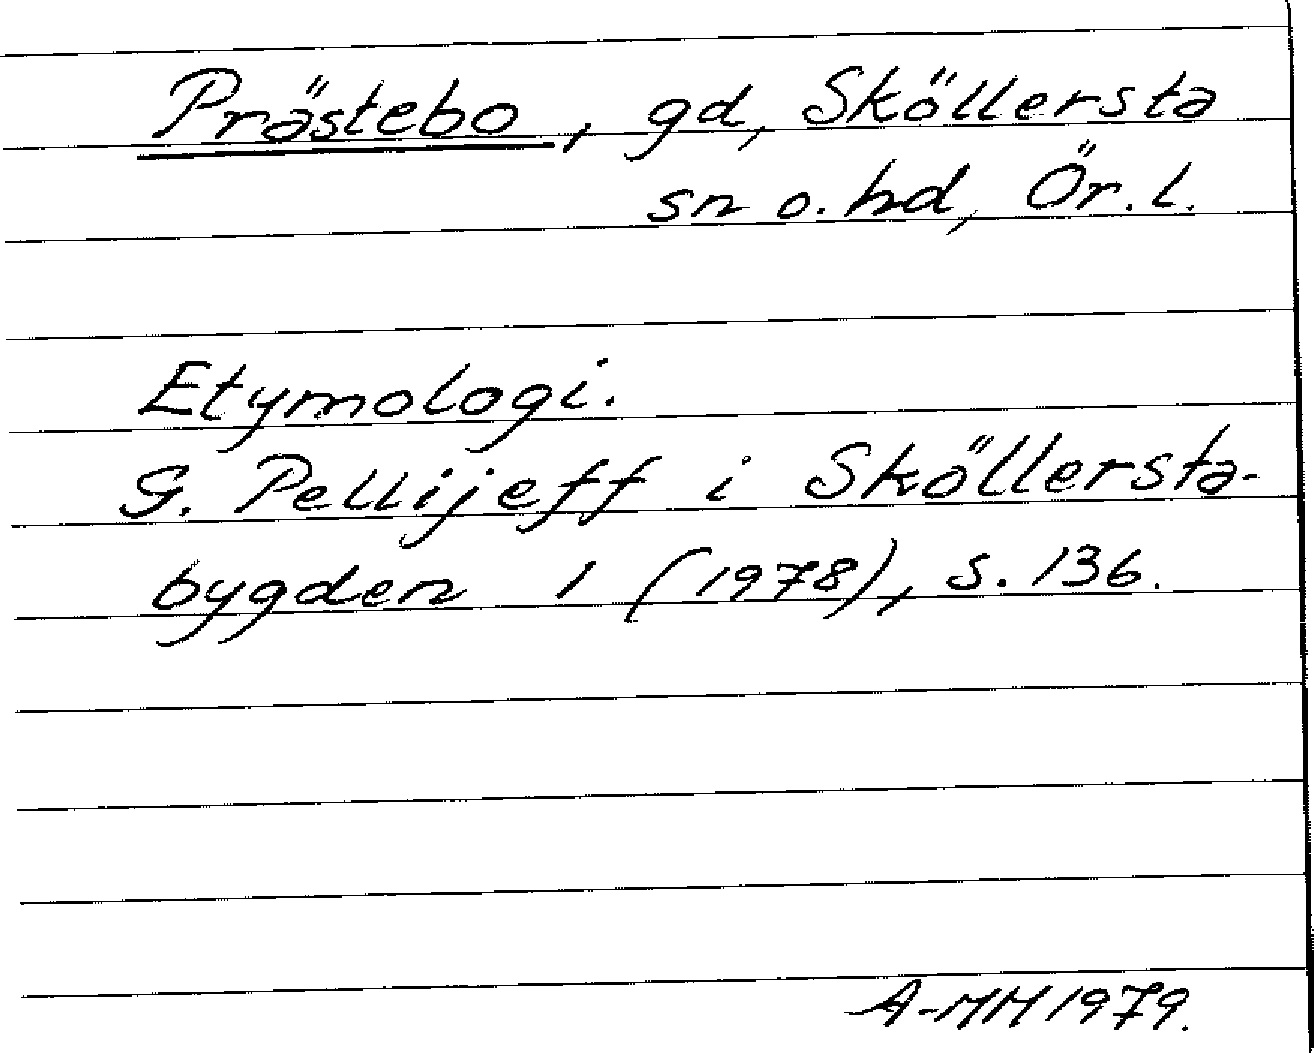 Prästebo, gd, Sköllersta
sn o. hd, Ör. l.
Etymologi.
G. Pellijeff i Sköllersta-
bygden 1 (1978), s. 136.
A-MH 1979.